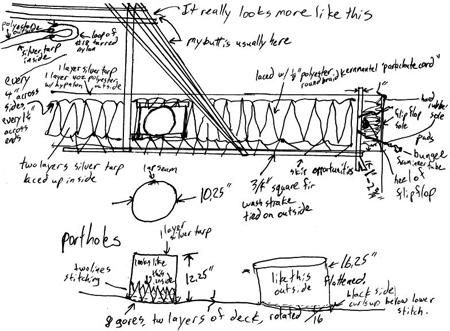 It really looks more like this
my butt is usually here
polyester
outside
loop of
#18 tarred
nylon
silver tarp
inside
every
4" across
sides,
every 1½"
across
ends
1 layer silver tarp
1 layer 4oz. polyester
w/hypalon outside
laced w/ ⅛" polyester
round braid kernmantel "parachute cord"
hard
rubber
sole
flipflop
sole
pads
bungee
inner tube
heel of
flipflop
1"-2"
two layers silver tarp
laced up inside
skis opportunities
3/4" square fir
wash strake
tied on outside
1 or seam
10.25"
portholes
1 layer
silver tarp
two lines
stitching
looks like
this
inside
12.25"
like this
outside
16.25"
flattened
black side
curls up below lower
stitch.
8 gores, two layers of deck, rotated 1/16